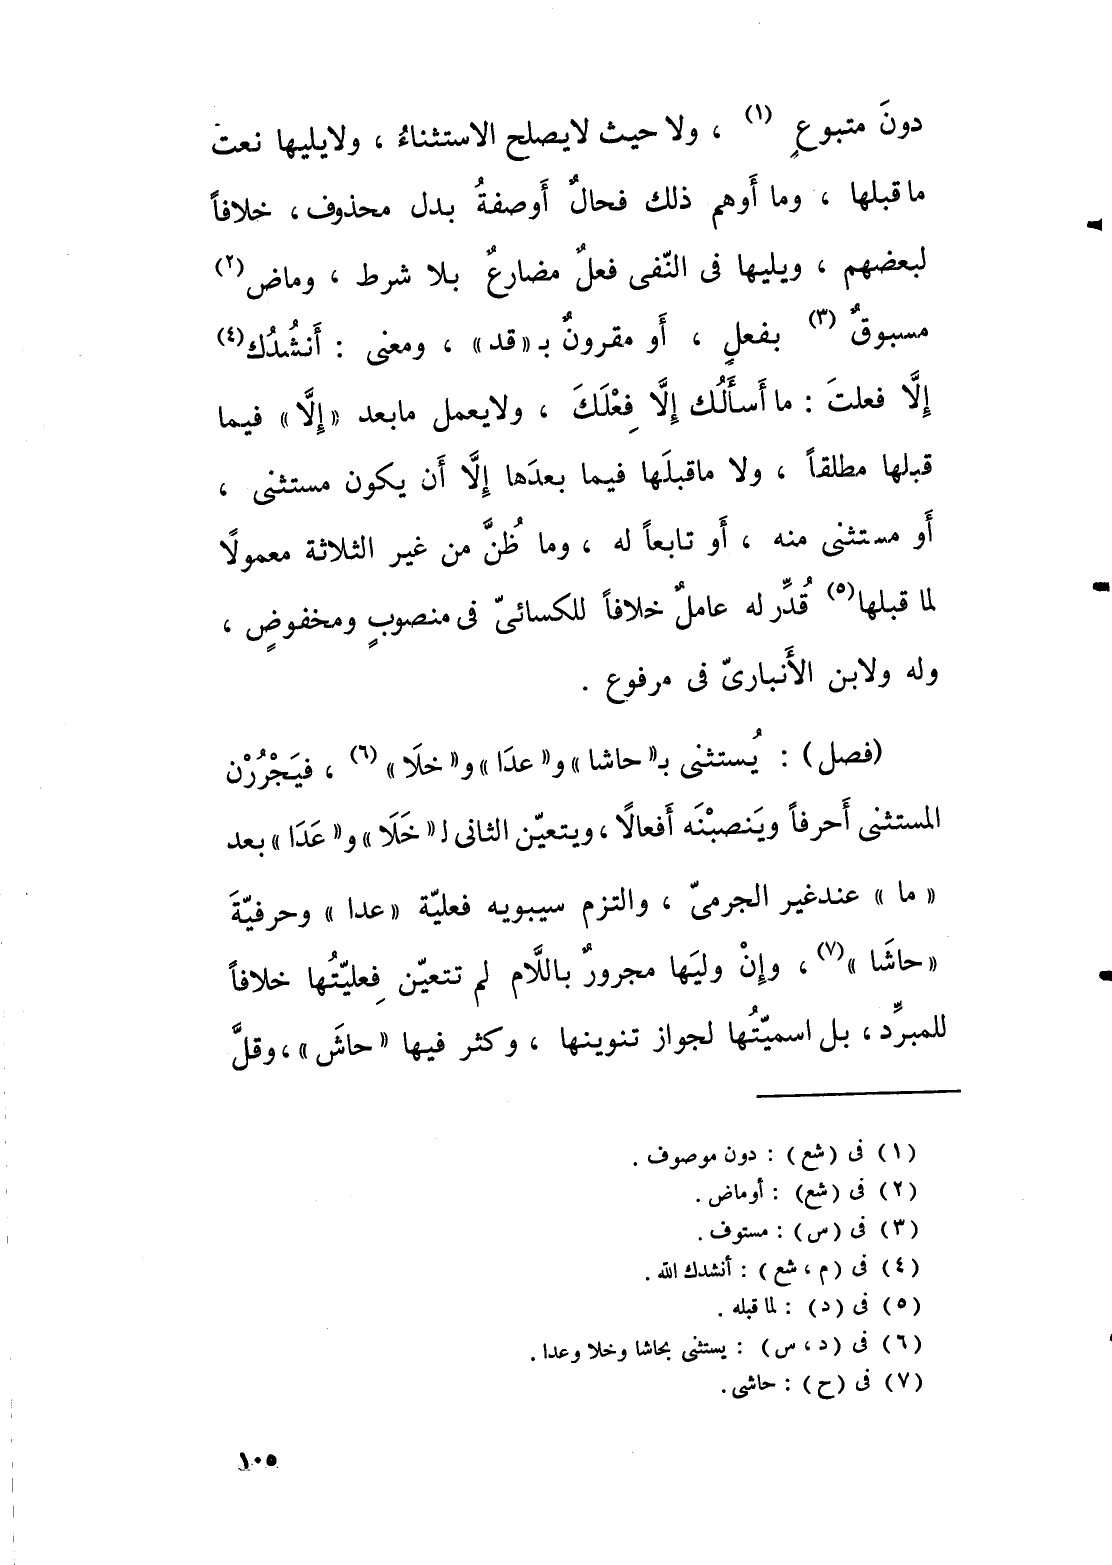 دونَ متبوعٍ (١) ، ولا حيث لايصلح الاستثناءُ ، ولايليها نعت
ما قبلها ، وما أَوهم ذلك فحالٌ أَوصفةُ بدل محذوف ، خلافاً
لبعضهم ، ويليها فى النّفى فعلٌ مضارعٌ بلا شرط ، وماض(٢)
مسبوقٌ (٣) بفعلٍ ، أَو مقرونٌ بـ «قد» ، ومعنى : أَنشُدُك(٤)
إِلَّا فعلتَ : ما أَسأَلُك إِلَّا فِعْلَكَ ، ولايعمل مابعد «إِلَّا» فيما
قبلها مطلقاً ، ولا ماقبلَها فيما بعدَها إِلَّا أَن يكون مستثنى ،
أَو مستثنى منه ، أَو تابعاً له ، وما ظُنَّ من غير الثلاثة معمولًا
لما قبلها(٥) قُدِّر له عاملٌ خلافاً للكسائىّ فى منصوبٍ ومخفوضٍ ،
وله ولابن الأَنبارىّ فى مرفوع .
(فصل) : يُستثنى بـ «حاشا» و«عدَا» و«خلَا» (٦) ، فيَجْرُرْن
المستثنى أَحرفاً ويَنصبْنَه أَفعالًا ، ويتعيّن الثانى لـ «خَلَا» و«عَدَا» بعد
«ما» عندغير الجرمىّ ، والتزم سيبويه فعليّة «عدا» وحرفيّةَ
«حاشَا»(٧) ، وإِنْ وليَها مجرورٌ باللَّام لم تتعيّن فِعليّتُها خلافاً
للمبرِّد ، بل اسميّتُها لجواز تنوينها ، وكثر فيها «حاشَ» ، وقلَّ
(١) فى (شع) : دون موصوف .
(٢) فى (شع) : أوماض .
(٣) فى (س) : مستوف .
(٤) فى (م ، شع) : أنشدك الله .
(٥) فى (د) : لما قبله .
(٦) فى (د ، س) : يستثنى بحاشا وخلا وعدا .
(٧) فى (ح) : حاشى .
١٠٥